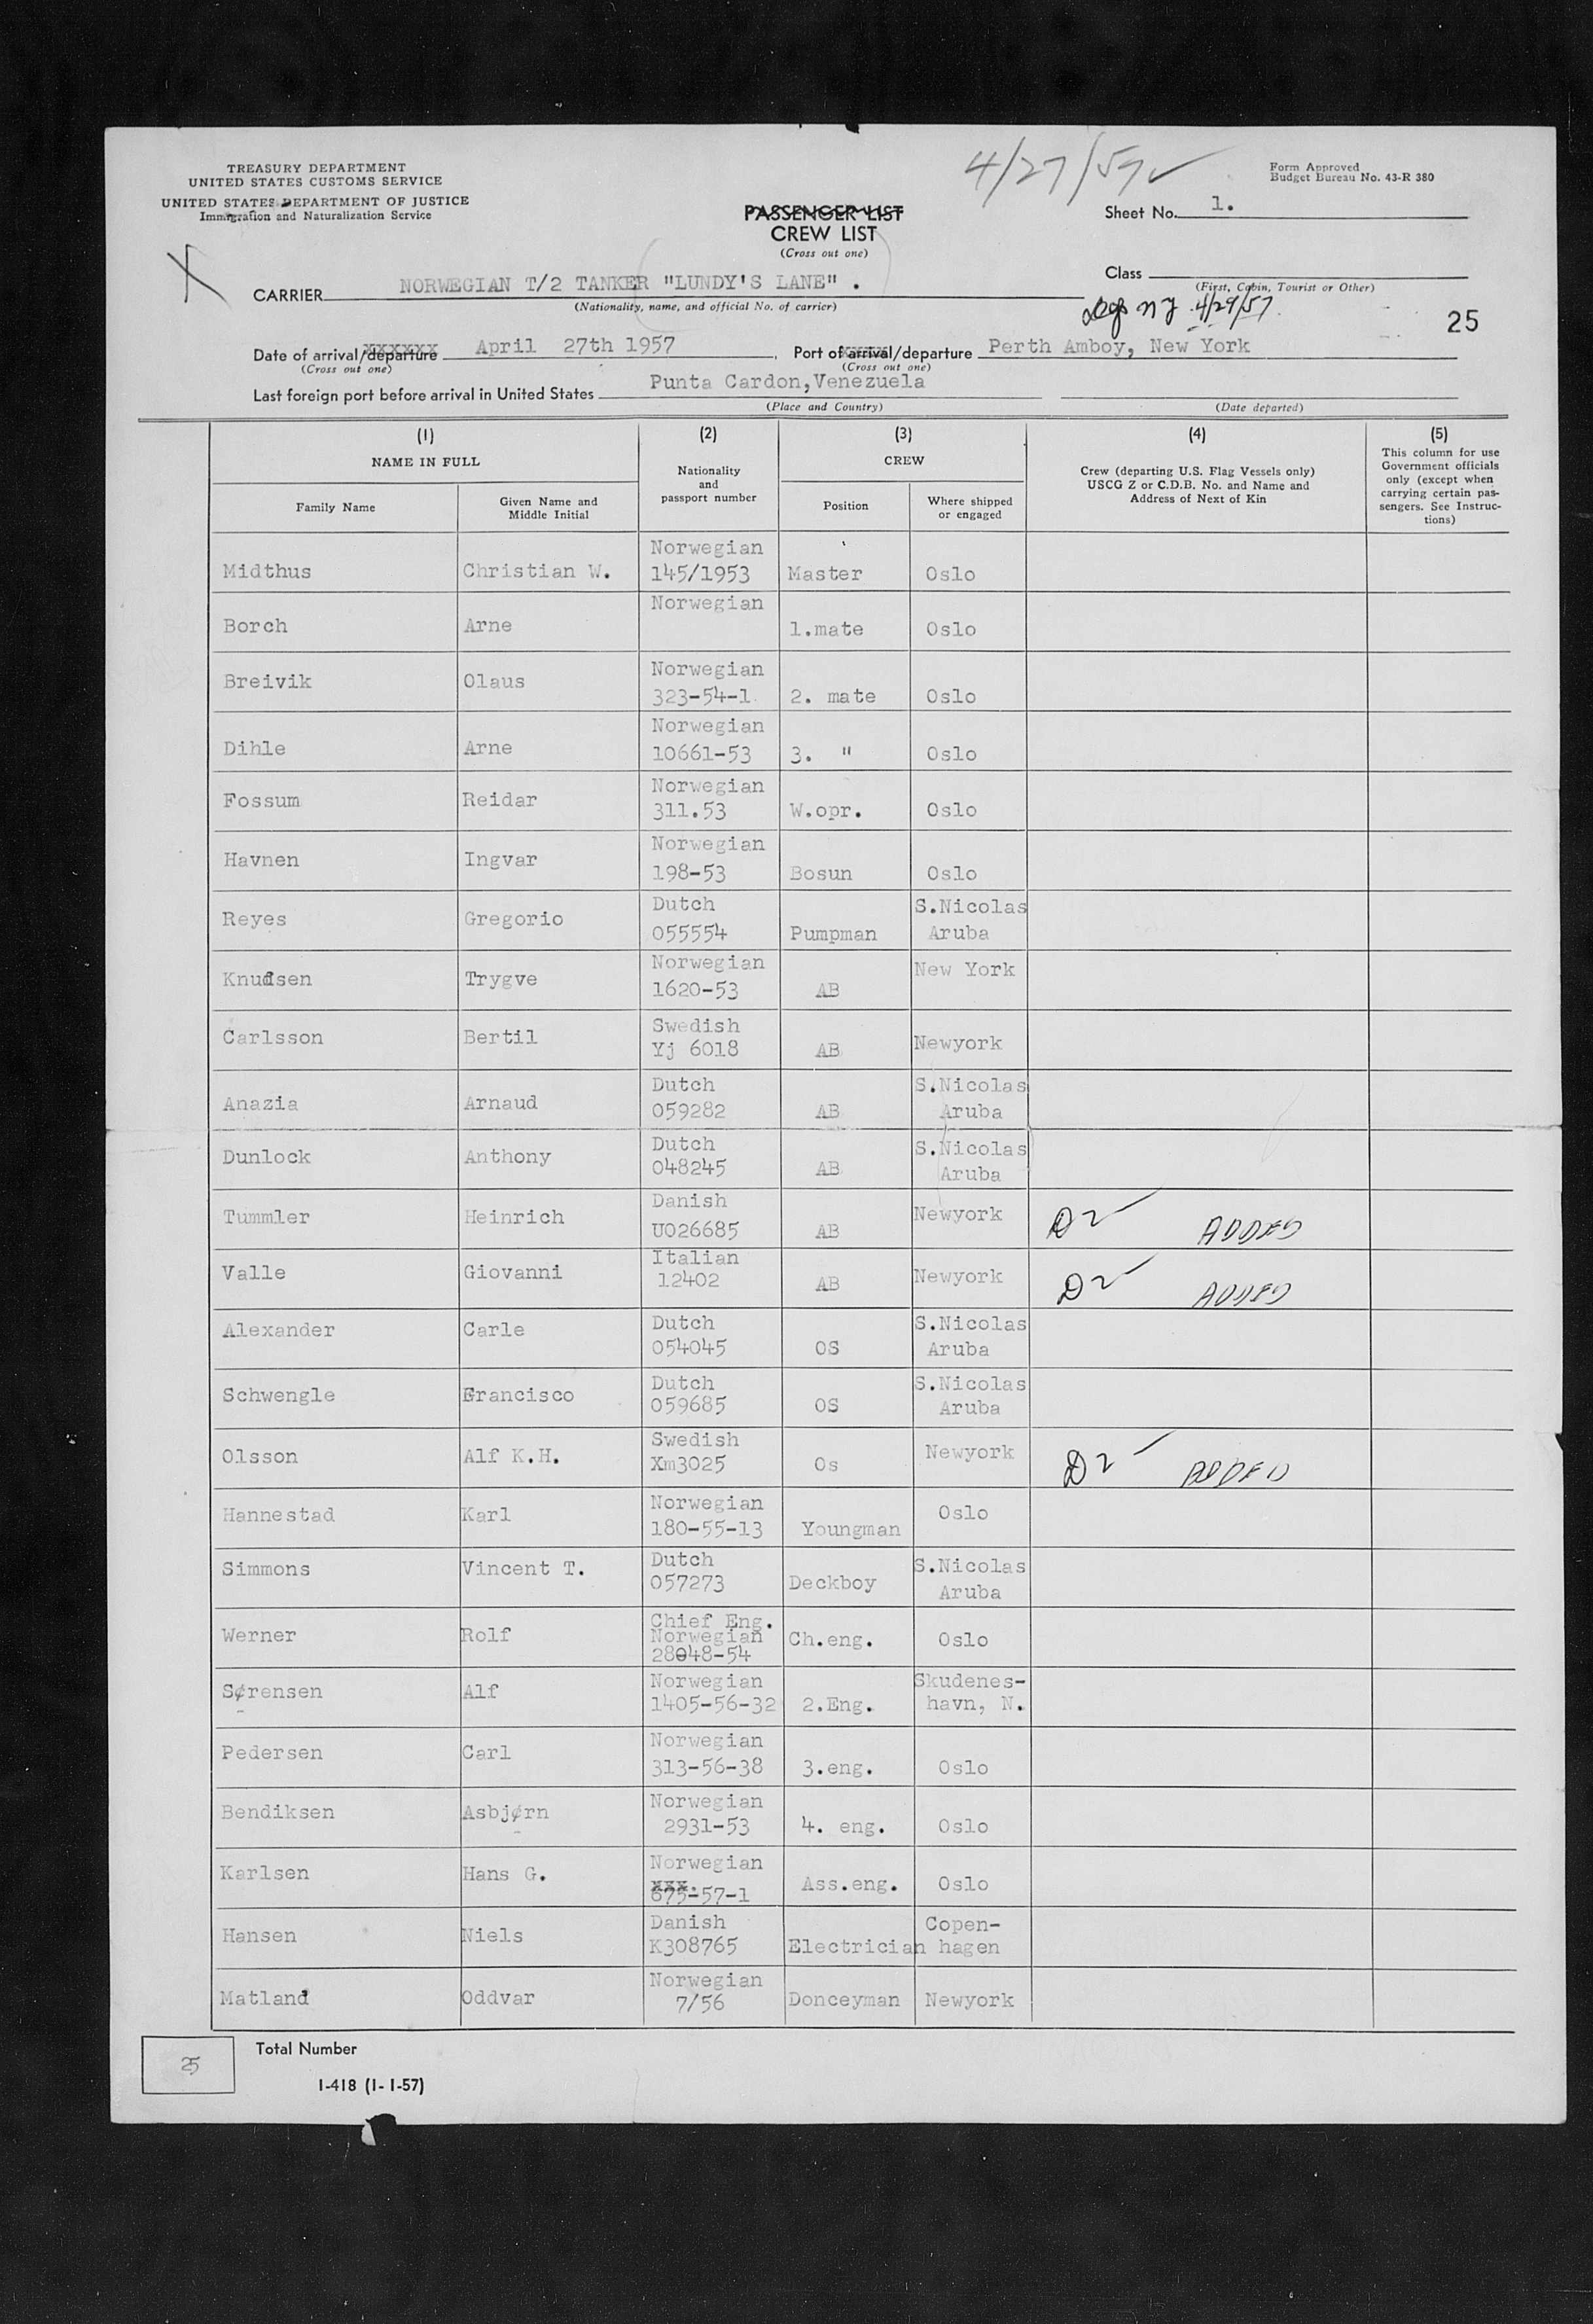 4/27/57 ✓
TREASURY DEPARTMENT
UNITED STATES CUSTOMS SERVICE
UNITED STATES DEPARTMENT OF JUSTICE
Immigration and Naturalization Service
Form Approved
Budget Bureau No. 43-R 380
PASSENGER LIST
CREW LIST
(Cross out one)
Sheet No. 1.
X
CARRIER NORWEGIAN T/2 TANKER "LUNDY'S LANE" .
(Nationality, name, and official No. of carrier)
Class
(First, Cabin, Tourist or Other)
NY 4/29/57
25
Date of arrival/departure April 27th 1957, Port of arrival/departure Perth Amboy, New York
(Cross out one) (Cross out one)
Last foreign port before arrival in United States Punta Cardon,Venezuela
(Place and Country) (Date departed)
(1) (2) (3) (4) (5)
NAME IN FULL Nationality and passport number CREW Crew (departing U.S. Flag Vessels only) USCG Z or C.D.B. No. and Name and Address of Next of Kin This column for use Government officials only (except when carrying certain passengers. See Instructions)
Family Name Given Name and Middle Initial Position Where shipped or engaged
Midthus Christian W. Norwegian 145/1953 Master Oslo
Borch Arne Norwegian 1.mate Oslo
Breivik Olaus Norwegian 323-54-1. 2. mate Oslo
Dihle Arne Norwegian 10661-53 3. " Oslo
Fossum Reidar Norwegian 311.53 W.opr. Oslo
Havnen Ingvar Norwegian 198-53 Bosun Oslo
Reyes Gregorio Dutch 055554 Pumpman S.Nicolas Aruba
Knudsen Trygve Norwegian 1620-53 AB New York
Carlsson Bertil Swedish Yj 6018 AB Newyork
Anazia Arnaud Dutch 059282 AB S.Nicolas Aruba
Dunlock Anthony Dutch 048245 AB S.Nicolas Aruba
Tummler Heinrich Danish U026685 AB Newyork D2 ✓ ADDED
Valle Giovanni Italian 12402 AB Newyork D2 ✓ ADDED
Alexander Carle Dutch 054045 OS S.Nicolas Aruba
Schwengle Francisco Dutch 059685 OS S.Nicolas Aruba
Olsson Alf K.H. Swedish Xm3025 Os Newyork D2 ✓ ADDED
Hannestad Karl Norwegian 180-55-13 Youngman Oslo
Simmons Vincent T. Dutch 057273 Deckboy S.Nicolas Aruba
Werner Rolf Chief Eng. Norwegian 28048-54 Ch.eng. Oslo
Sørensen Alf Norwegian 1405-56-32 2.Eng. Skudenes-havn, N.
Pedersen Carl Norwegian 313-56-38 3.eng. Oslo
Bendiksen Asbjørn Norwegian 2931-53 4. eng. Oslo
Karlsen Hans G. Norwegian xxx. 675-57-1 Ass.eng. Oslo
Hansen Niels Danish K308765 Electrician Copen-hagen
Matland Oddvar Norwegian 7/56 Donceyman Newyork
25 Total Number
I-418 (1-1-57)